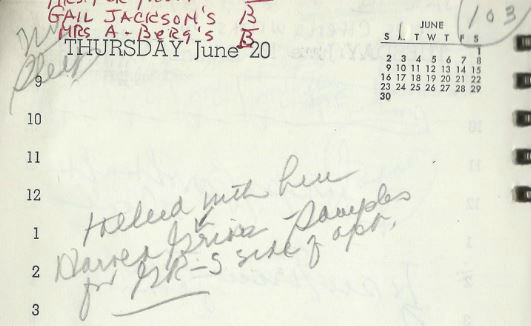 GAIL JACKSON'S B
MRS A-BERG'S B
THURSDAY June 20
103
JUNE
S M T W T F S
1
2 3 4 5 6 7 8
9 10 11 12 13 14 15
16 17 18 19 20 21 22
23 24 25 26 27 28 29
30
9
10
11
12
talked with
1
samples
2
for side of apt.
3